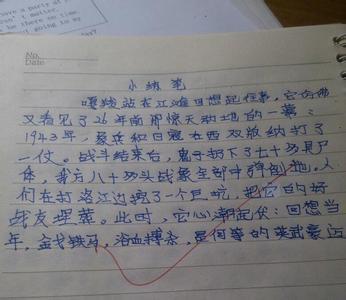 have a party at
don't matter.
be there on time.
going to my
No.
Date
小练笔
嘎羧站在江滩回想起往事，它仿佛
又看见了26年前那惊天动地的一幕：
1943年，象兵和日寇在西双版纳打了
一仗。战斗结束后，鬼子扔下了七十多具尸
体，我方八十多头战象全部中弹倒地，人
们在打洛江边挖了一个巨坑，把它的好
战友埋葬。此时，它心潮起伏：回想当
年，金戈铁马，浴血搏杀，是何等的英武豪迈